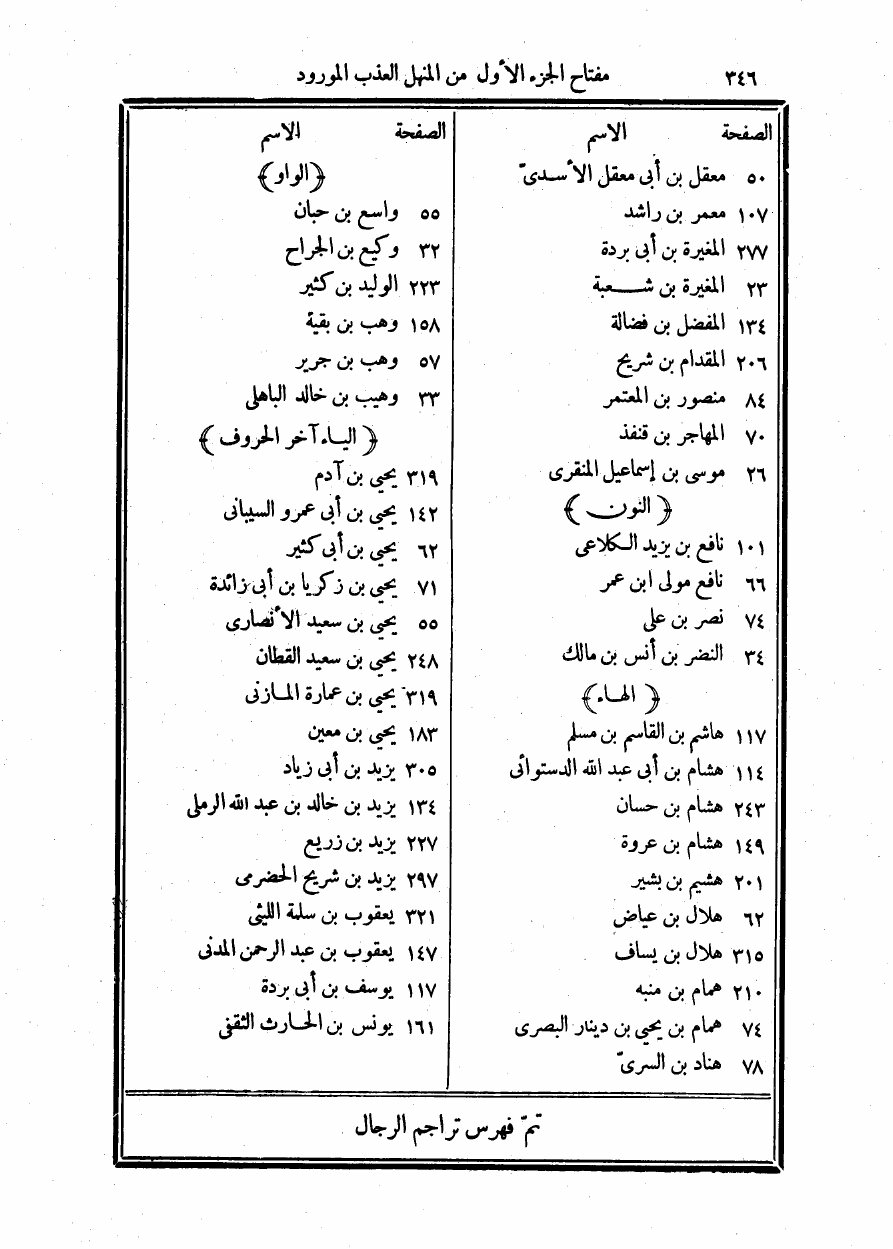 ٣٤٦ مفتاح الجزء الأول من المنهل العذب المورود
الصفحة الاسم
٥٠ معقل بن أبى معقل الأسدىّ
١٠٧ معمر بن راشد
٢٧٧ المغيرة بن أبى بردة
٢٣ المغيرة بن شعبة
١٣٤ المفضل بن فضالة
٢٠٦ المقدام بن شريح
٨٤ منصور بن المعتمر
٧٠ المهاجر بن قنفذ
٢٦ موسى بن إسماعيل المنقرى
﴿ النون ﴾
١٠١ نافع بن يزيد الكلاعى
٦٦ نافع مولى ابن عمر
٧٤ نصر بن على
٣٤ النضر بن أنس بن مالك
﴿ الهاء ﴾
١١٧ هاشم بن القاسم بن مسلم
١١٤ هشام بن أبى عبد الله الدستوائى
٢٤٣ هشام بن حسان
١٤٩ هشام بن عروة
٢٠١ هشيم بن بشير
٦٢ هلال بن عياض
٣١٥ هلال بن يساف
٢١٠ همام بن منبه
٧٤ همام بن يحيى بن دينار البصرى
٧٨ هناد بن السرىّ
الصفحة الاسم
﴿الواو﴾
٥٥ واسع بن حبان
٣٢ وكيع بن الجراح
٢٢٣ الوليد بن كثير
١٥٨ وهب بن بقية
٥٧ وهب بن جرير
٣٣ وهيب بن خالد الباهلى
﴿ الياء آخر الحروف ﴾
٣١٩ يحيى بن آدم
١٤٢ يحيى بن أبى عمرو السيبانى
٦٢ يحيى بن أبى كثير
٧١ يحيى بن زكريا بن أبى زائدة
٥٥ يحيى بن سعيد الأنصارى
٢٤٨ يحيى بن سعيد القطان
٣١٩ يحيى بن عمارة المازنى
١٨٣ يحيى بن معين
٣٠٥ يزيد بن أبى زياد
١٣٤ يزيد بن خالد بن عبد الله الرملى
٢٢٧ يزيد بن زريع
٢٩٧ يزيد بن شريح الحضرمى
٣٢١ يعقوب بن سلمة الليثى
١٤٧ يعقوب بن عبد الرحمن المدنى
١١٧ يوسف بن أبى بردة
١٦١ يونس بن الحارث الثقفى
تمّ فهرس تراجم الرجال